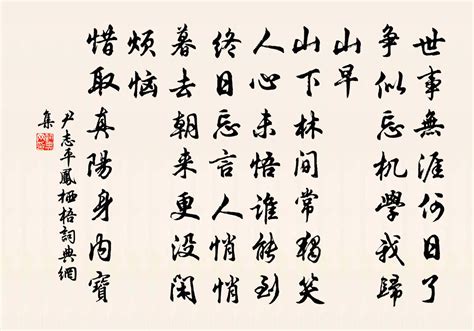 世事無涯何日了
争似忘机學我歸
山早
山下林间常獨笑
人心未悟誰能到
终日忘言人悄悄
暮去朝来更没闲
烦恼
惜取真陽身内寶
尹志平鳳栖梧詞典網
集